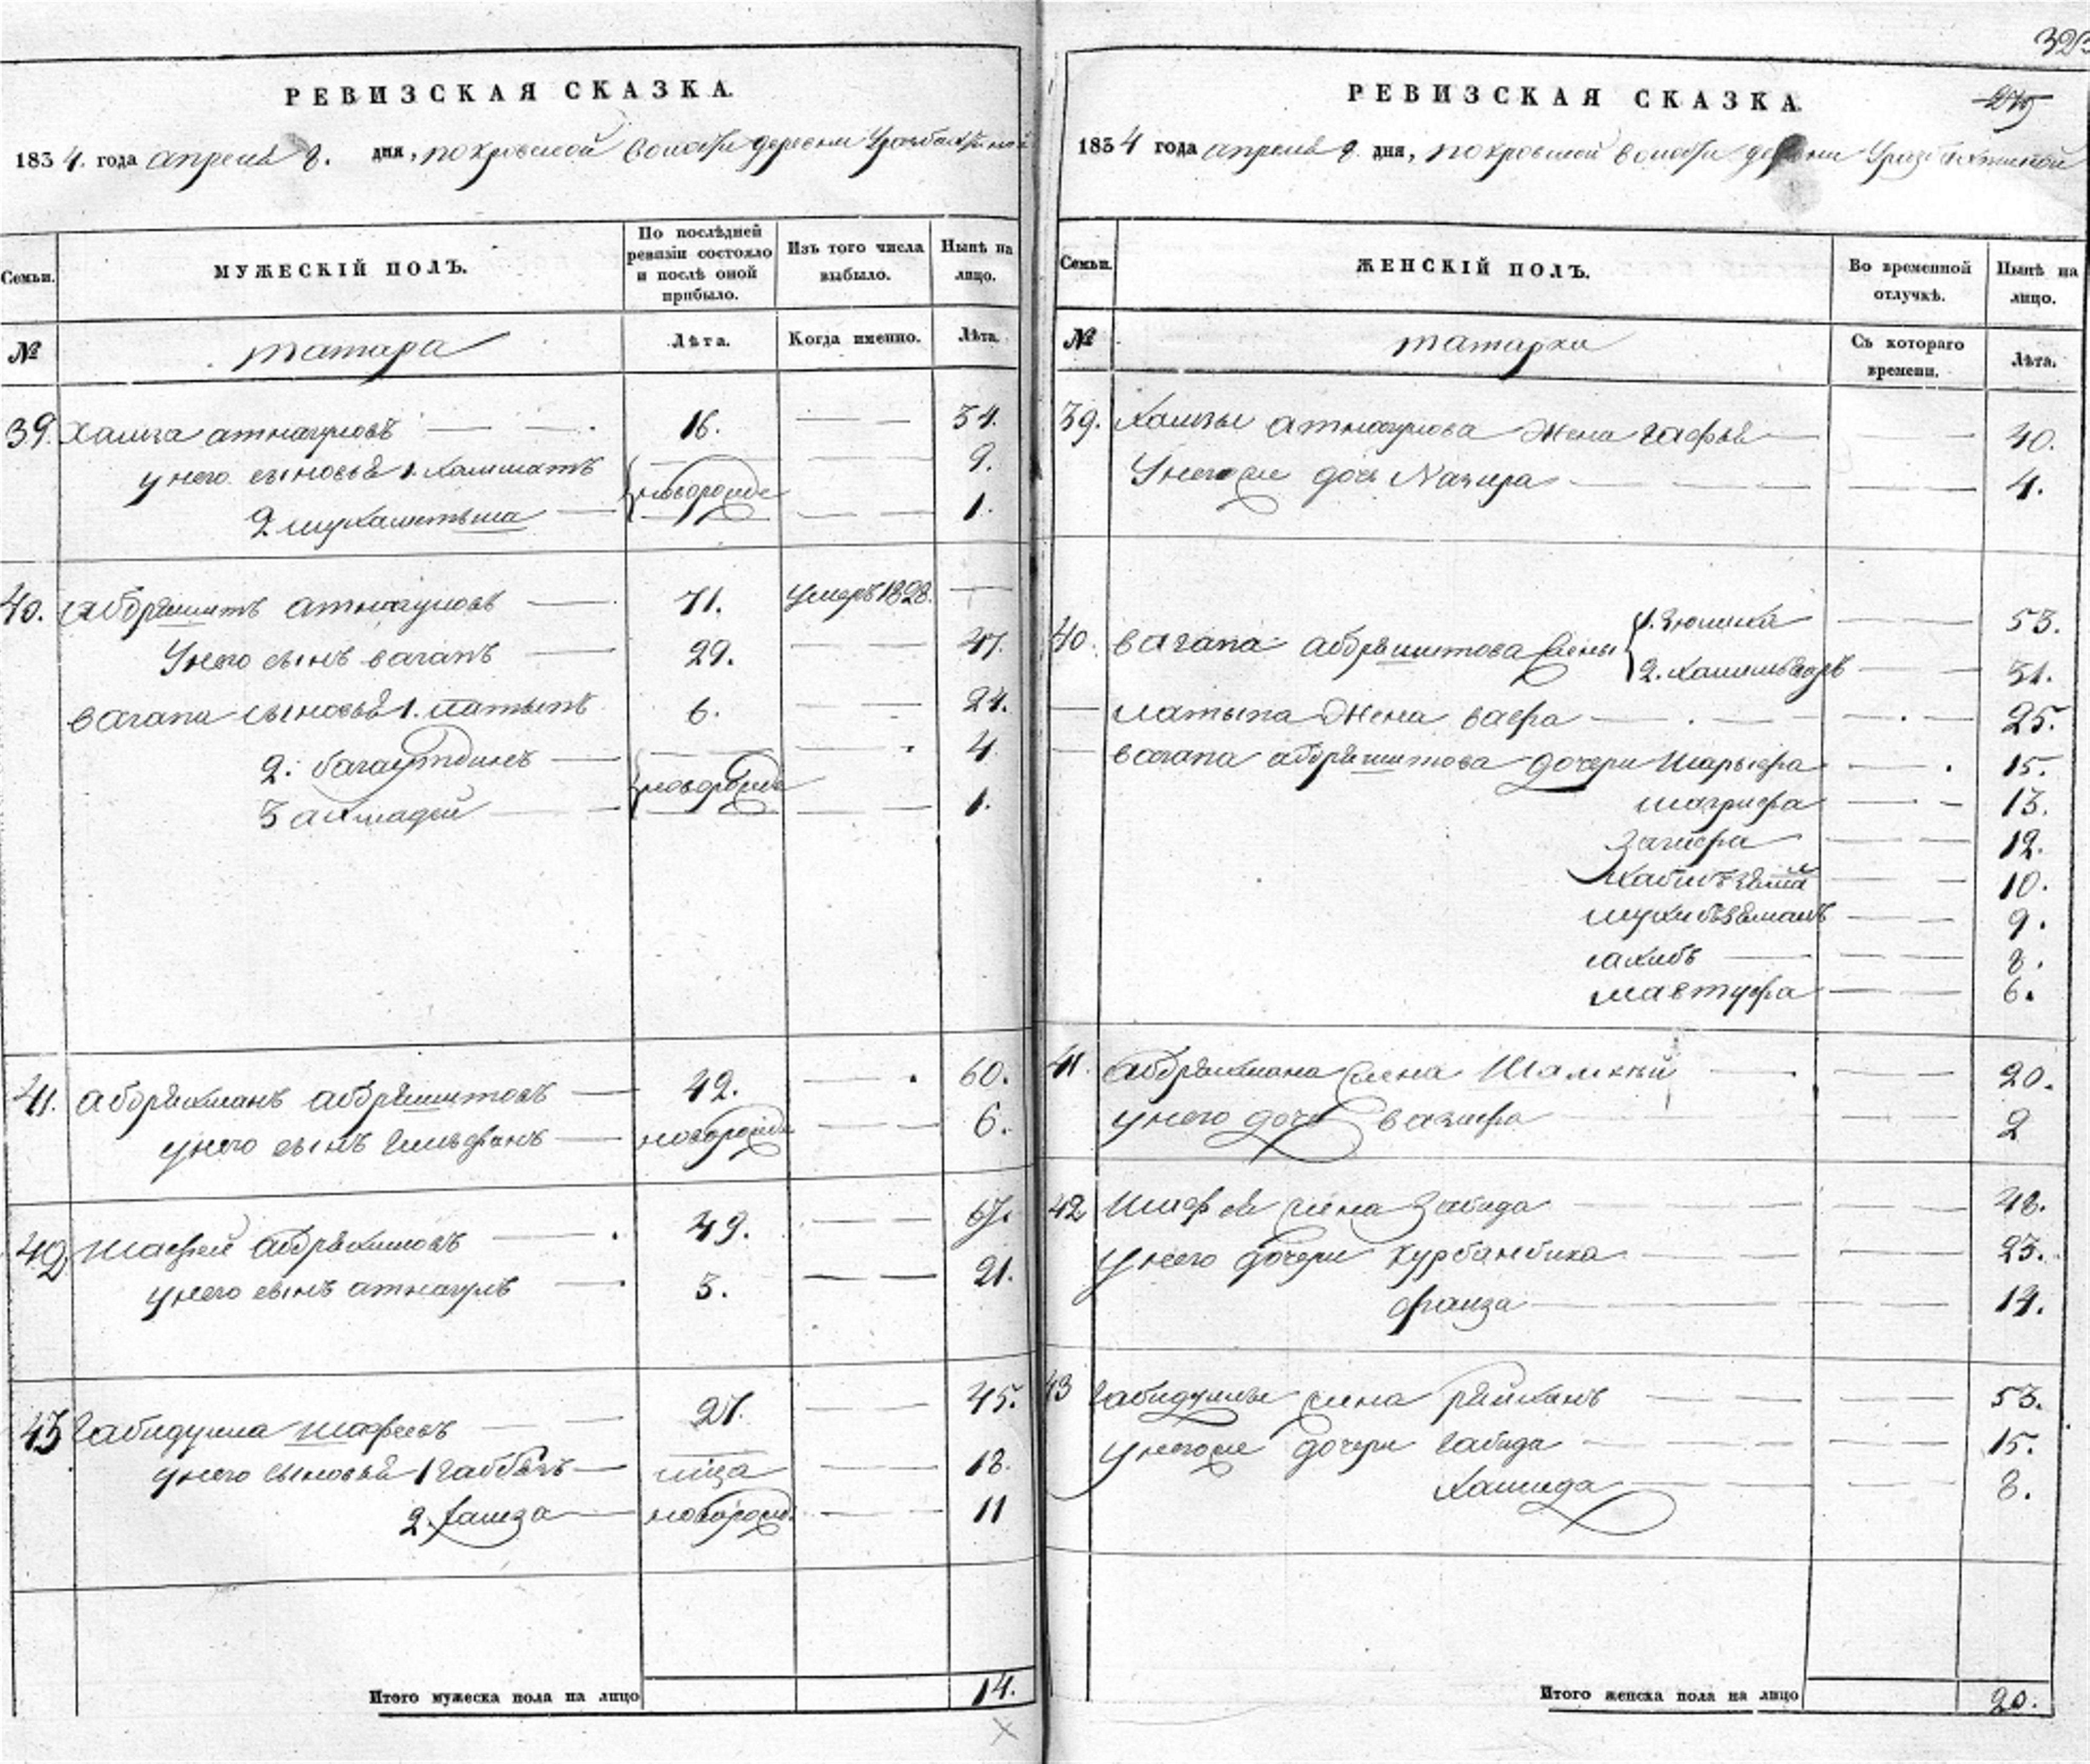 323
275
РЕВИЗСКАЯ СКАЗКА.
1834. года апреля 8. дня, покровской волости деревни Уразбахтиной
Семьи.
МУЖЕСКІЙ ПОЛЪ.
По послѣдней ревизіи состояло и послѣ оной прибыло.
Изъ того числа выбыло.
Нынѣ на лицо.
№
татара
Лѣта.
Когда именно.
Лѣта.
39. Хамза атнагуловъ 16. 34.
у него сыновья 1. 9.
новорожде
2 1.
40. абдряшитъ атнагуловъ 71. умеръ 1828.
У него сынъ вагапъ 29. 47.
вагапа сыновья 1. латыпъ 6. 24.
2. багаутдинъ 4.
новорожде
3 ахмадей 1.
41. абдряхманъ абдряшитовъ 42. 60.
у него сынъ новорожде 6.
42. Шафей 49. 67.
у него сынъ атнагулъ 3. 21.
43 Габидулла шафеевъ 27. 45.
у него сыновья 1 18.
2. Хамза новорожд. 11
Итого мужеска пола на лицо 14.
РЕВИЗСКАЯ СКАЗКА.
1834 года апреля 8. дня, покровской волости деревни Уразбахтиной
Семьи.
ЖЕНСКІЙ ПОЛЪ.
Во временной отлучкѣ.
Нынѣ на лицо.
№
татарки
Съ котораго времени.
Лѣта.
39. Хамзы атнагулова жена 40.
У негоже дочь Назира 4.
40. вагапа абдряшитова жены 1. 53.
2. 51.
латыпа жена васфа 25.
вагапа абдряшитова дочери Шарифа 15.
шагрифа 13.
Загифа 12.
10.
9.
8.
мавтуфа 6.
41. абдряхмана жена 20.
у него дочь вазифа 2
42 жена Забида 48.
у него дочери курбанбика 23.
фаиза 14.
43 Габидуллы жена 53.
у негоже дочери Габида 15.
Хамида 8.
Итого женска пола на лицо 20.